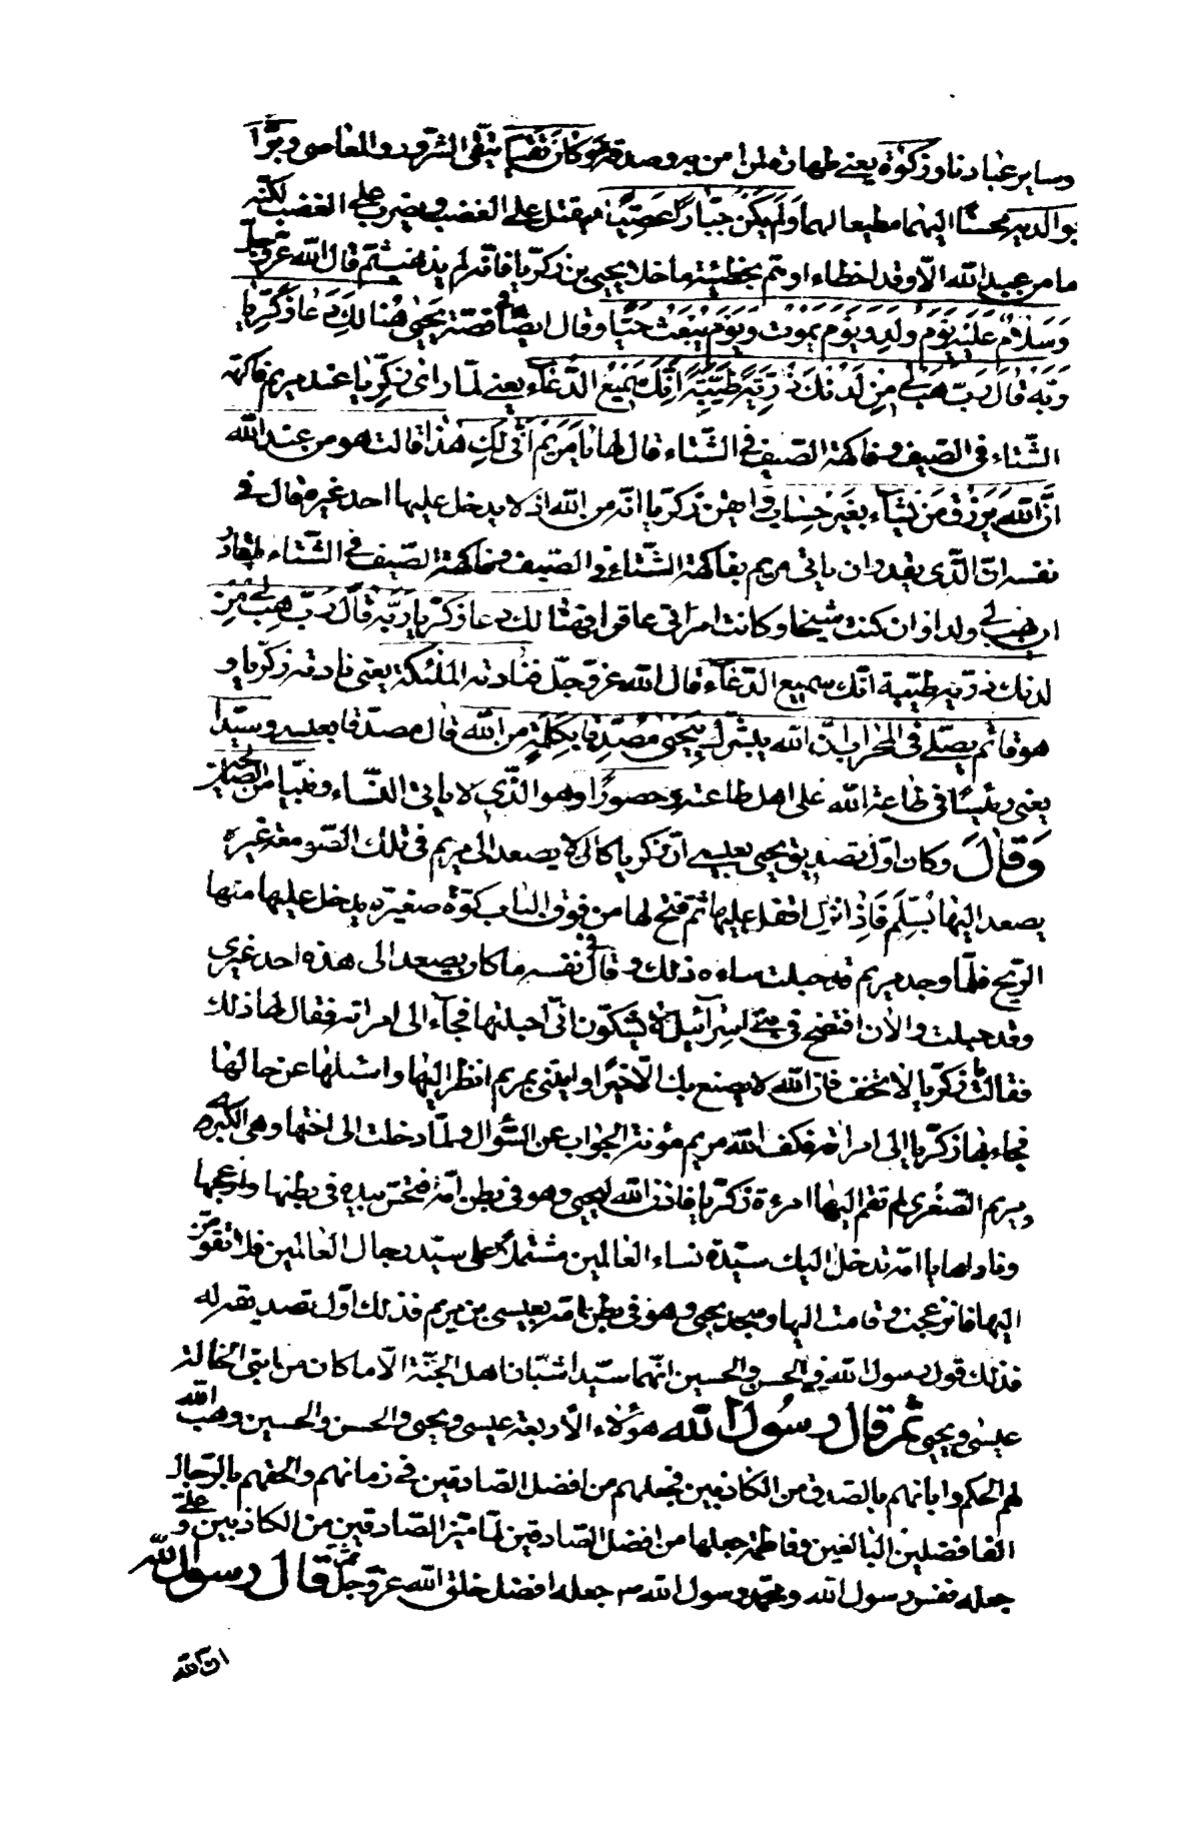 وساير عبادنا وزكوة يعنى طهارة لمن امن به وصدقه وكان تقيا يتقى الشرور والمعاصى وبرا
بوالديه محسنا اليهما مطيعا لهما ولم يكن جبارا عصيا يقتل على الغضب ويضرب على الغضب لكنه
ما من عبد الله الا وقد اخطاء او هم بخطيئة ما خلا يحيى بن زكريا فانه لم يذنب ثم قال الله عز وجل
وسلام عليه يوم ولد ويوم يموت ويوم يبعث حيا وقال ايضا فى قصة يحيى هنالك دعا زكريا
ربه قال رب هب لى من لدنك ذرية طيبة انك سميع الدعاء يعنى لما راى زكريا عند مريم فاكهة
الشتاء فى الصيف وفاكهة الصيف فى الشتاء قال لها يا مريم انى لك هذا قالت هو من عند الله
ان الله يرزق من يشاء بغير حساب وايقن زكريا انه من الله اذ لا يدخل عليها احد غيره فقال فى
نفسه ان الذى يقدر ان ياتى مريم بفاكهة الشتاء فى الصيف وفاكهة الصيف فى الشتاء لقادر
ان يهب لى ولدا وان كنت شيخا وكانت امراتى عاقرا فهنالك دعا زكريا ربه قال رب هب لى من
لدنك ذرية طيبة انك سميع الدعاء قال الله عز وجل فنادته الملئكة يعنى نادته زكريا و
هو قائم يصلى فى المحراب ان الله يبشرك بيحيى مصدقا بكلمة من الله قال مصدقا بعيسى وسيدا
يعنى رئيسا فى طاعة الله على اهل طاعته وحصورا وهو الذى لا ياتى النساء ونبيا من الصالحين
وقال وكان اول تصديق يحيى بعيسى ان زكريا كان لا يصعد الى مريم فى تلك الصومعة غيره
يصعد اليها بسلم فاذا نزل اقفل عليها ثم فتح لها من فوق الباب كوة صغيرة يدخل عليها منها
الريح فلما وجد مريم قد حبلت ساءه ذلك وقال فى نفسه ما كان يصعد الى هذه احد غيرى
وقد حبلت والان افتضح فى بنى اسرائيل لا يشكون انى احبلتها فجاء الى امراته فقال لها ذلك
فقالت يا زكريا لا تخف فان الله لا يصنع بك الا خيرا وايتنى بمريم انظر اليها واسئلها عن حالها
فجاء بها زكريا الى امراته فكفى الله مريم مؤنة الجواب عن السؤال ولما دخلت الى اختها وهى الكبرى
ومريم الصغرى لم تقم اليها امرءة زكريا فاذن الله ليحيى وهو فى بطن امه فنخس بيده فى بطنها وازعجها
وناداها يا امه تدخل اليك سيدة نساء العالمين مشتملة على سيد رجال العالمين فلا تقومين
اليها فانزعجت وقامت اليها وسجد يحيى وهو فى بطن امه بعيسى بن مريم فذلك اول تصديقه له
فذلك قول رسول الله فى الحسن والحسين انهما سيدا شبان اهل الجنة الا ما كان من ابنى الخالة
عيسى ويحيى ثم قال رسول الله هؤلاء الاربعة عيسى ويحيى والحسن والحسين وهب الله
لهم الحكم وابانهم بالصدق من الكاذبين فجعلهم من افضل الصادقين فى زمانهم والحقهم بالرجال
الفاضلين البالغين وفاطمة جعلها من افضل الصادقين لما ميز الصادقين من الكاذبين وعلى
جعله نفس رسول الله ومحمد رسول الله ص جعله افضل خلق الله عز وجل ثم قال رسول الله
ان لله